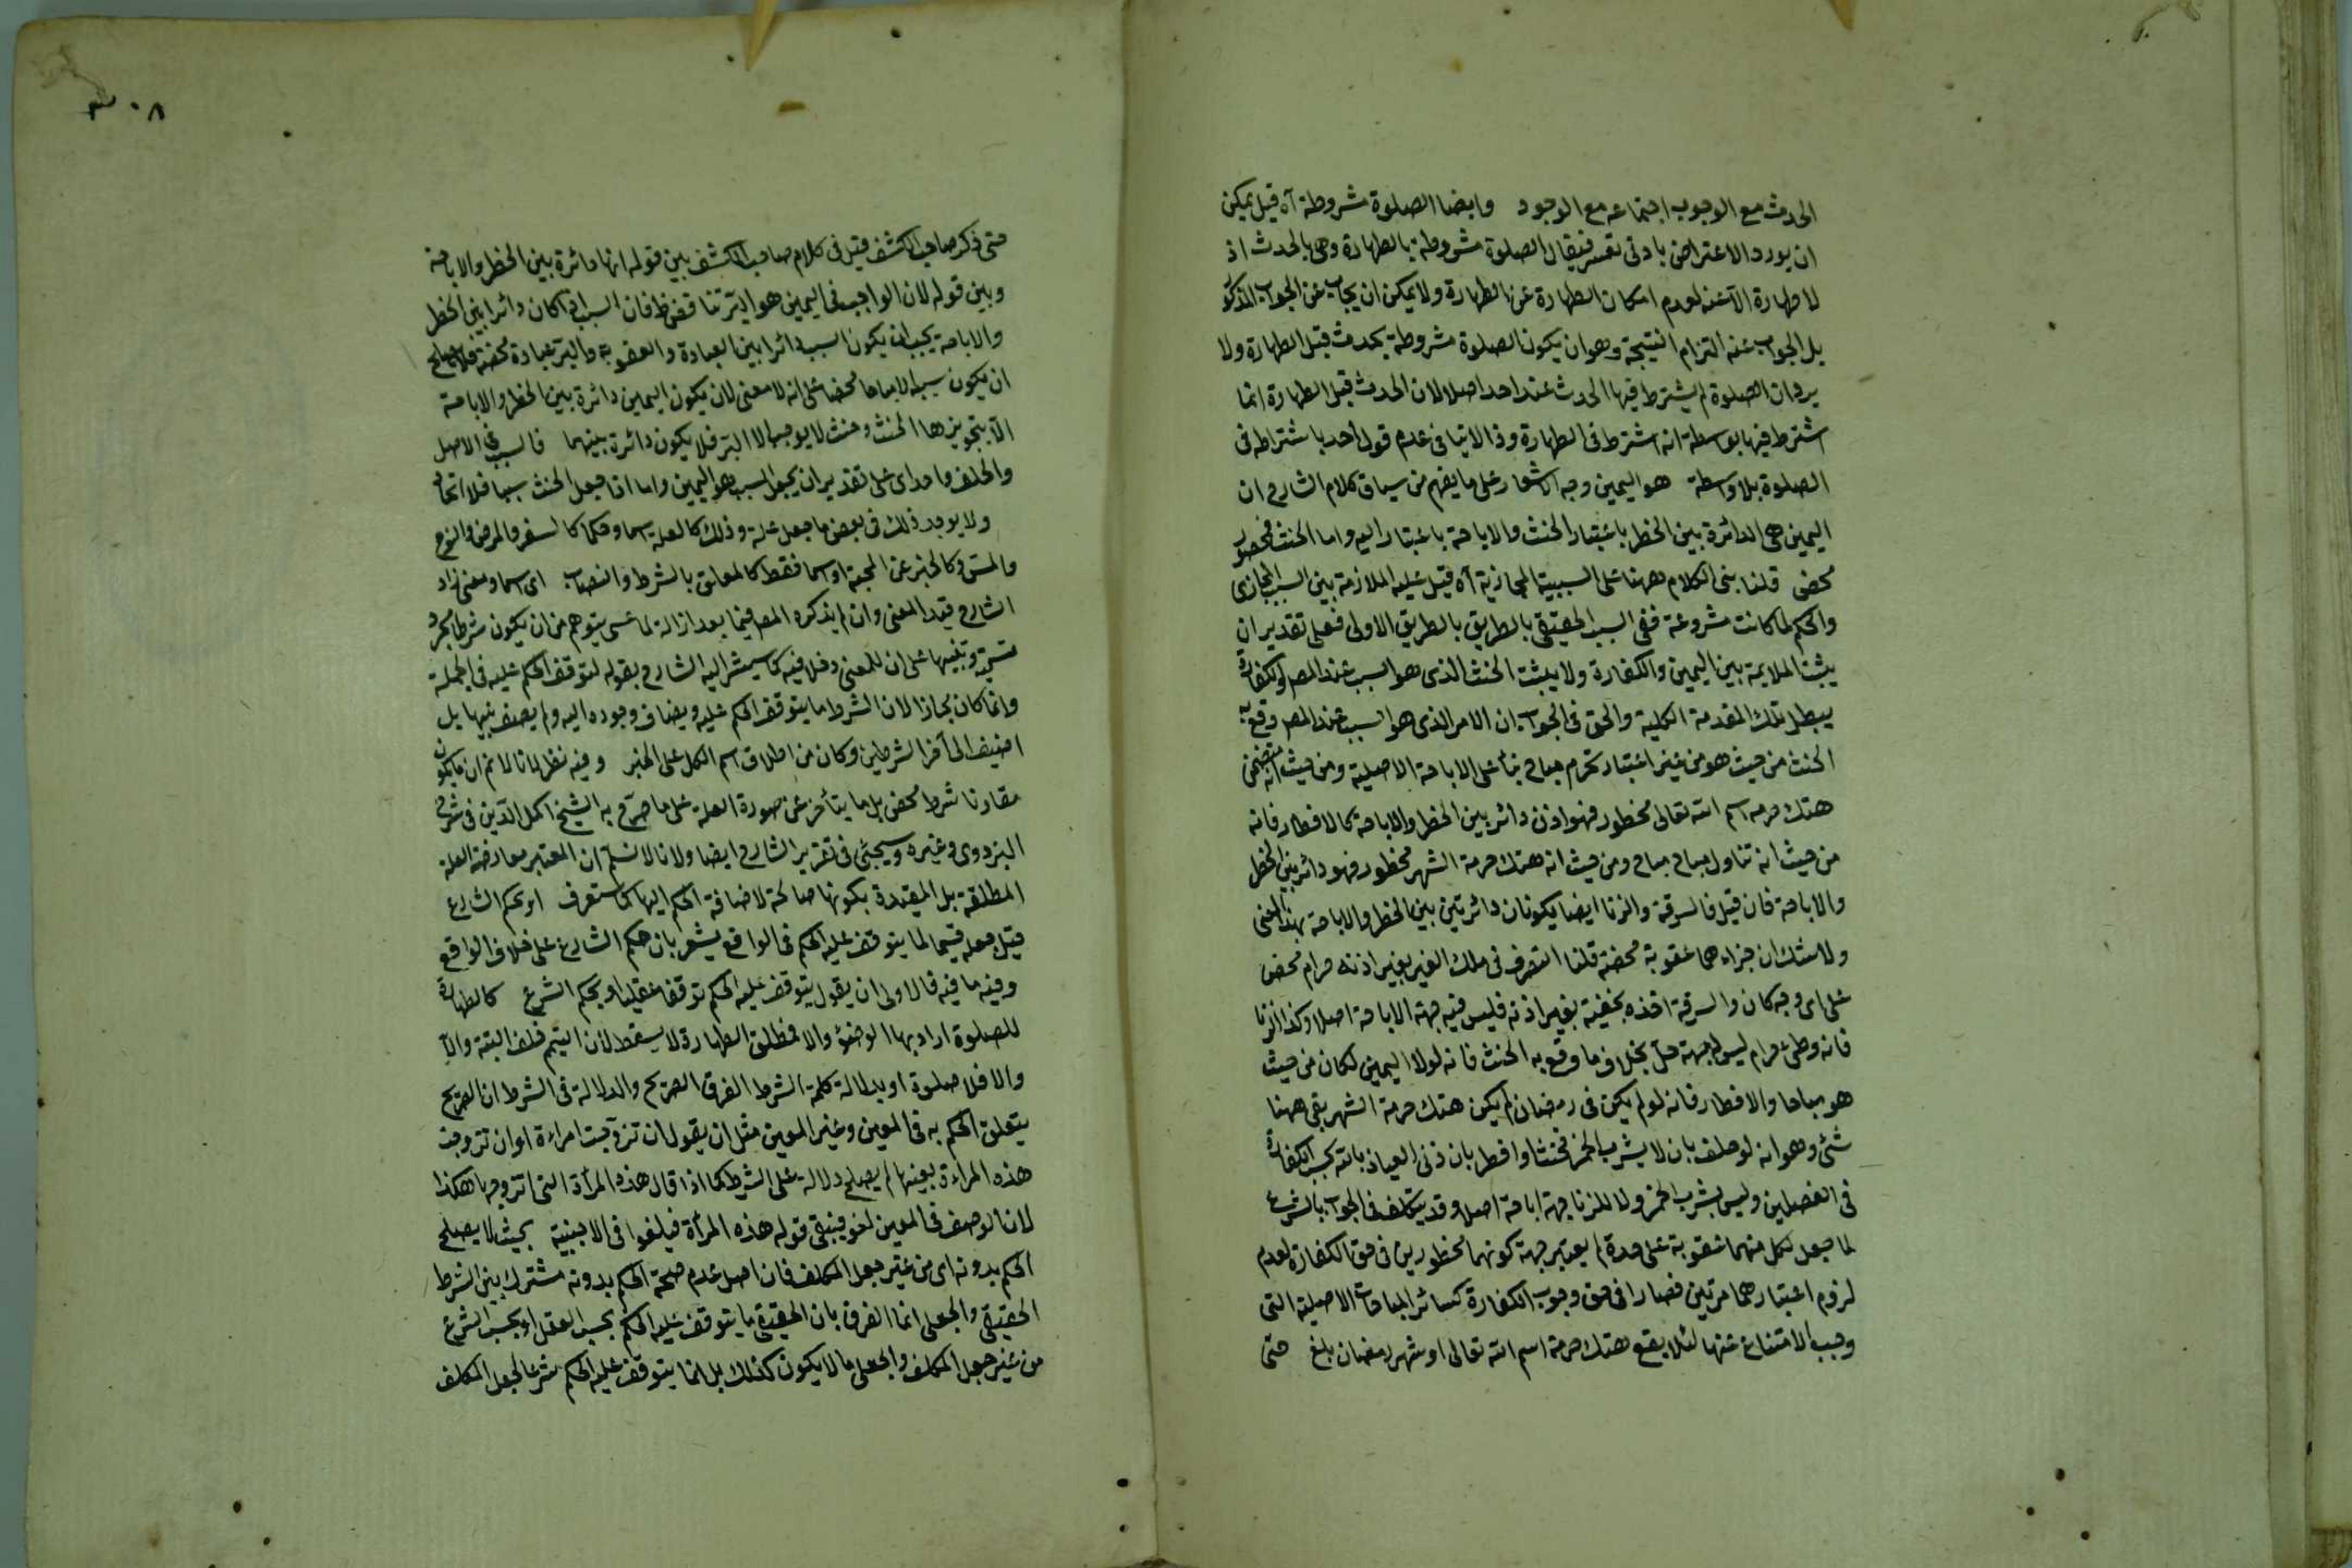 الحدث مع الوجوب اجتماعه مع الوجود وايضا الصلوة مشروطة آه قيل يمكن
ان يورد الاعتراض بادنى تغيير فيقال الصلوة مشروطة بالطهارة وهى بالحدث اذ
لا طهارة الا عنه لعدم امكان الطهارة عن الطهارة ولا يمكن ان يجاب عن الجواب المذكور
بل الجواب عنه التزام النتيجة وهو ان يكون الصلوة مشروطة بحدث قبل الطهارة ولا
يرد ان الصلوة لم يشترط فيها الحدث عند احد اصلا لان الحدث قبل الطهارة انما
اشترط فيها بواسطة انه اشترط فى الطهارة وذا لا ينافى عدم قول احد باشتراطه فى
الصلوة بلا واسطة هو اليمين وجه الاشعار على ما يفهم من سياق كلام الشارح ان
اليمين هى الدائرة بين الحظر باعتبار الحنث والاباحة باعتبار اليه واما الحنث فمحظور
محض قلنا بنى الكلام ههنا على السببية المجازية آه قيل عليه الملازمة بين السبب المجازى
والحكم لما كانت مشروعة ففى السبب الحقيقى بالطريق بالطريق الاولى فعلى تقدير ان
يثبت الملايمة بين اليمين والكفارة ولا يثبت الحنث الذى هو السبب عند المص والكفارة
يبطل تلك المقدمة الكلية والحق فى الجواب ان الامر الذى هو السبب عند المص وقع به
الحنث من حيث هو من غير اعتبار تحرم مباح بناء على الاباحة الاصلية ومن حيث انه متضمن
هتك حرمة اسم الله تعالى محظور فهو اذن دائر بين الحظر والاباحة كالافطار فانه
من حيث انه تناول مباح مباح ومن حيث انه هتك حرمة الشهر محظور فهو دائر بين الحظر
والاباحة فان قيل فالسرقة والزنا ايضا يكونان دائرتين بين الحظر والاباحة بهذا المعنى
ولا شك ان جزاءهما عقوبة محضة قلنا التصرف فى ملك الغير بغير اذنه حرام محض
على اى وجه كان والسرقة اخذه بخفية بغير اذنه فليس فيه جهة الاباحة اصلا وكذا الزنا
فانه وطئ حرام ليس له جهة حل بخلاف ما وقع به الحنث فانه لولا اليمين لكان من حيث
هو مباحا والافطار فانه لو لم يكن فى رمضان لم يكن هتك حرمة الشهر بقى ههنا
شئ وهو انه لو حلف بان لا يشرب الخمر فحنث او افطر بان زنى العياذ بالله يجب الكفارة
فى الفصلين وليس بشرب الخمر ولا للزنا جهة اباحة اصلا وقد يتكلف فى الجواب بالشرع
لما جعل لكل منهما عقوبة على حدة لم يعتبر جهة كونهما محظورين فى حق الكفارة لعدم
لزوم اعتبارهما مرتين فصارا فى حق وجوب الكفارة كسائر المباحات الاصلية التى
وجب الامتناع عنها لئلا يقع هتك حرمة اسم الله تعالى او شهر رمضان بلغ حتى
حتى ذكر صاحب الكشف قيل فى كلام صاحب الكشف بين قوله انها دائرة بين الحظر والاباحة
وبين قوله لان الواجب فى اليمين هو البر تناقض ظ فان السبب اذا كان دائرا بين الحظر
والاباحة يجب ان يكون السبب دائرا بين العبادة والعقوبة والبر عبادة محضة فلا يصلح
ان يكون سببه الا مباحا محضا على انه لا معنى لان يكون اليمين دائرة بين الحظر والاباحة
الا بتجويزها الحنث وحنث لا يوجبها الا البر فلا يكون دائرة بينهما فالسبب فى الاصل
والخلف واحد اى على تقدير ان يجعل السبب هو اليمين واما اذا جعل الحنث سببا فلا اتحاد
ولا يوجد ذلك فى بعض ما جعل علة وذلك كالعلة اسما وحكما كالسفر والمرض والنوم
والمس وكالخبر عن المحبة او اسما فقط كالمعلق بالشرط والنصاب اى اسما ومعنى زاد
الشارح قيد المعنى وان لم يذكره المص فيما بعد ازالة لما عسى يتوهم من ان يكون شرطا مجرد
تسمية وتنبيها على ان للمعنى دخلا فيه كما سيشير اليه الشارح بقوله لتوقف الحكم عليه فى الجملة
وانما كان مجازا لان الشرط ما يتوقف الحكم عليه ويضاف وجوده اليه ولم يصف بنيها بل
اضيف الى آخر الشرطين وكان من اطلاق اسم الكل على الجزء وفيه نظر لانا لا نم ان ما يكون
مقارنا شرط محض بل ما يتأخر عن صورة العلة على ما صرح به الشيخ اكمل الدين فى شرح
البزدوى وغيره وسيجئ فى تقرير الشارح ايضا ولانا لا نسلم ان المعتبر معارضة العلة
المطلقة بل المقيدة بكونها صالحة لاضافة الحكم اليها كما ستعرف او بحكم الشارع
قيل جعله قسيما لما يتوقف عليه الحكم فى الواقع يشعر بان حكم الشارع على خلاف الواقع
وفيه ما فيه فالاولى ان يقول يتوقف عليه الحكم توقفا عقليا او بحكم الشرع كالطهارة
للصلوة اراد بها الوضوء والا فمطلق الطهارة لا يسقط لان التيمم خلف البتة والا
والا فلا صلوة او بدلالة كلمة الشرط الفرق الصريح والدلالة فى الشرط ان الصريح
يتعلق الحكم به فى المعين وغير المعين مثل ان يقول ان تزوجت امراءة او ان تزوجت
هذه المراءة بعينها لم يصلح دلالة على الشرط كما اذا قال هذه المرأة التى اتزوجها هكذا
لان الوصف فى المعين لغو فيبقى قوله هذه المرأة فيلغوا فى الاجنبية بحيث لا يصلح
الحكم بدونه اى من غير جعل المكلف فان اصل عدم صحة الحكم بدونه مشترك بين الشرط
الحقيقى والجعلى انما الفرق بان الحقيقى ما يتوقف عليه الحكم بحسب العقل او بحسب الشرع
من غير جعل المكلف والجعلى ما لا يكون كذلك بل انما يتوقف عليه الحكم شرعا لجعل المكلف